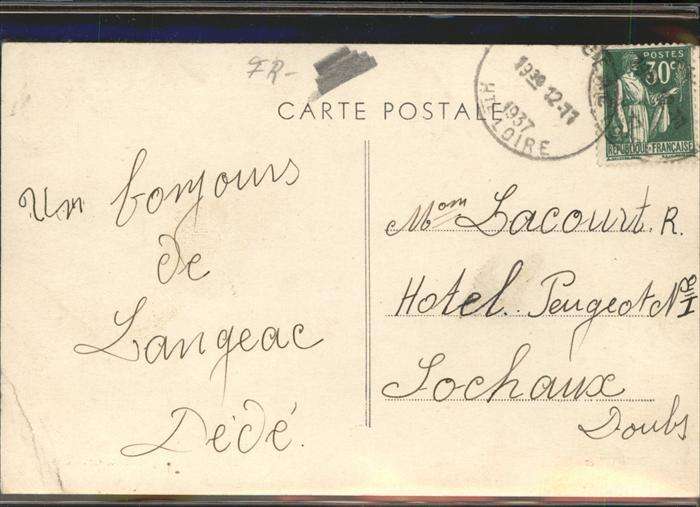 FR-
CARTE POSTALE
19 30 12-11
1937
HTE LOIRE
POSTES
30c
REPUBLIQUE FRANÇAISE
Un bonjours
de
Langeac
Dédé.
Mom Lacourt. R.
Hotel. Peugeot
Sochaux
Doubs